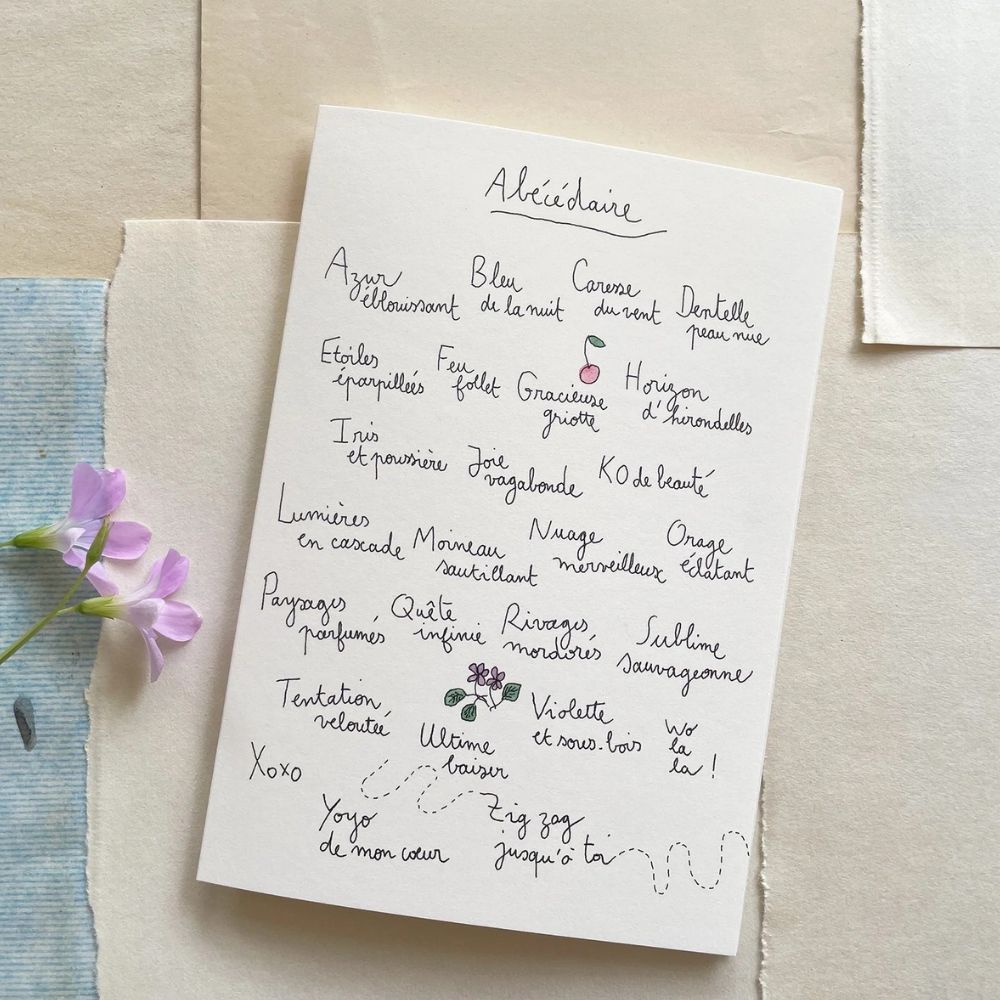 Abécédaire
Azur
éblouissant
Bleu
de la nuit
Caresse
du vent
Dentelle
peau nue
Etoiles
éparpillées
Feu
follet
Gracieuse
griotte
Horizon
d'hirondelles
Iris
et poussière
Joie
vagabonde
KO de beauté
Lumières
en cascade
Moineau
sautillant
Nuage
merveilleux
Orage
éclatant
Paysages
parfumés
Quête
infinie
Rivages
mordorés
Sublime
sauvageonne
Tentation
veloutée
Ultime
baiser
Violette
et sous-bois
Wo
la
la !
Xoxo
Yoyo
de mon cœur
Zig zag
jusqu'à toi